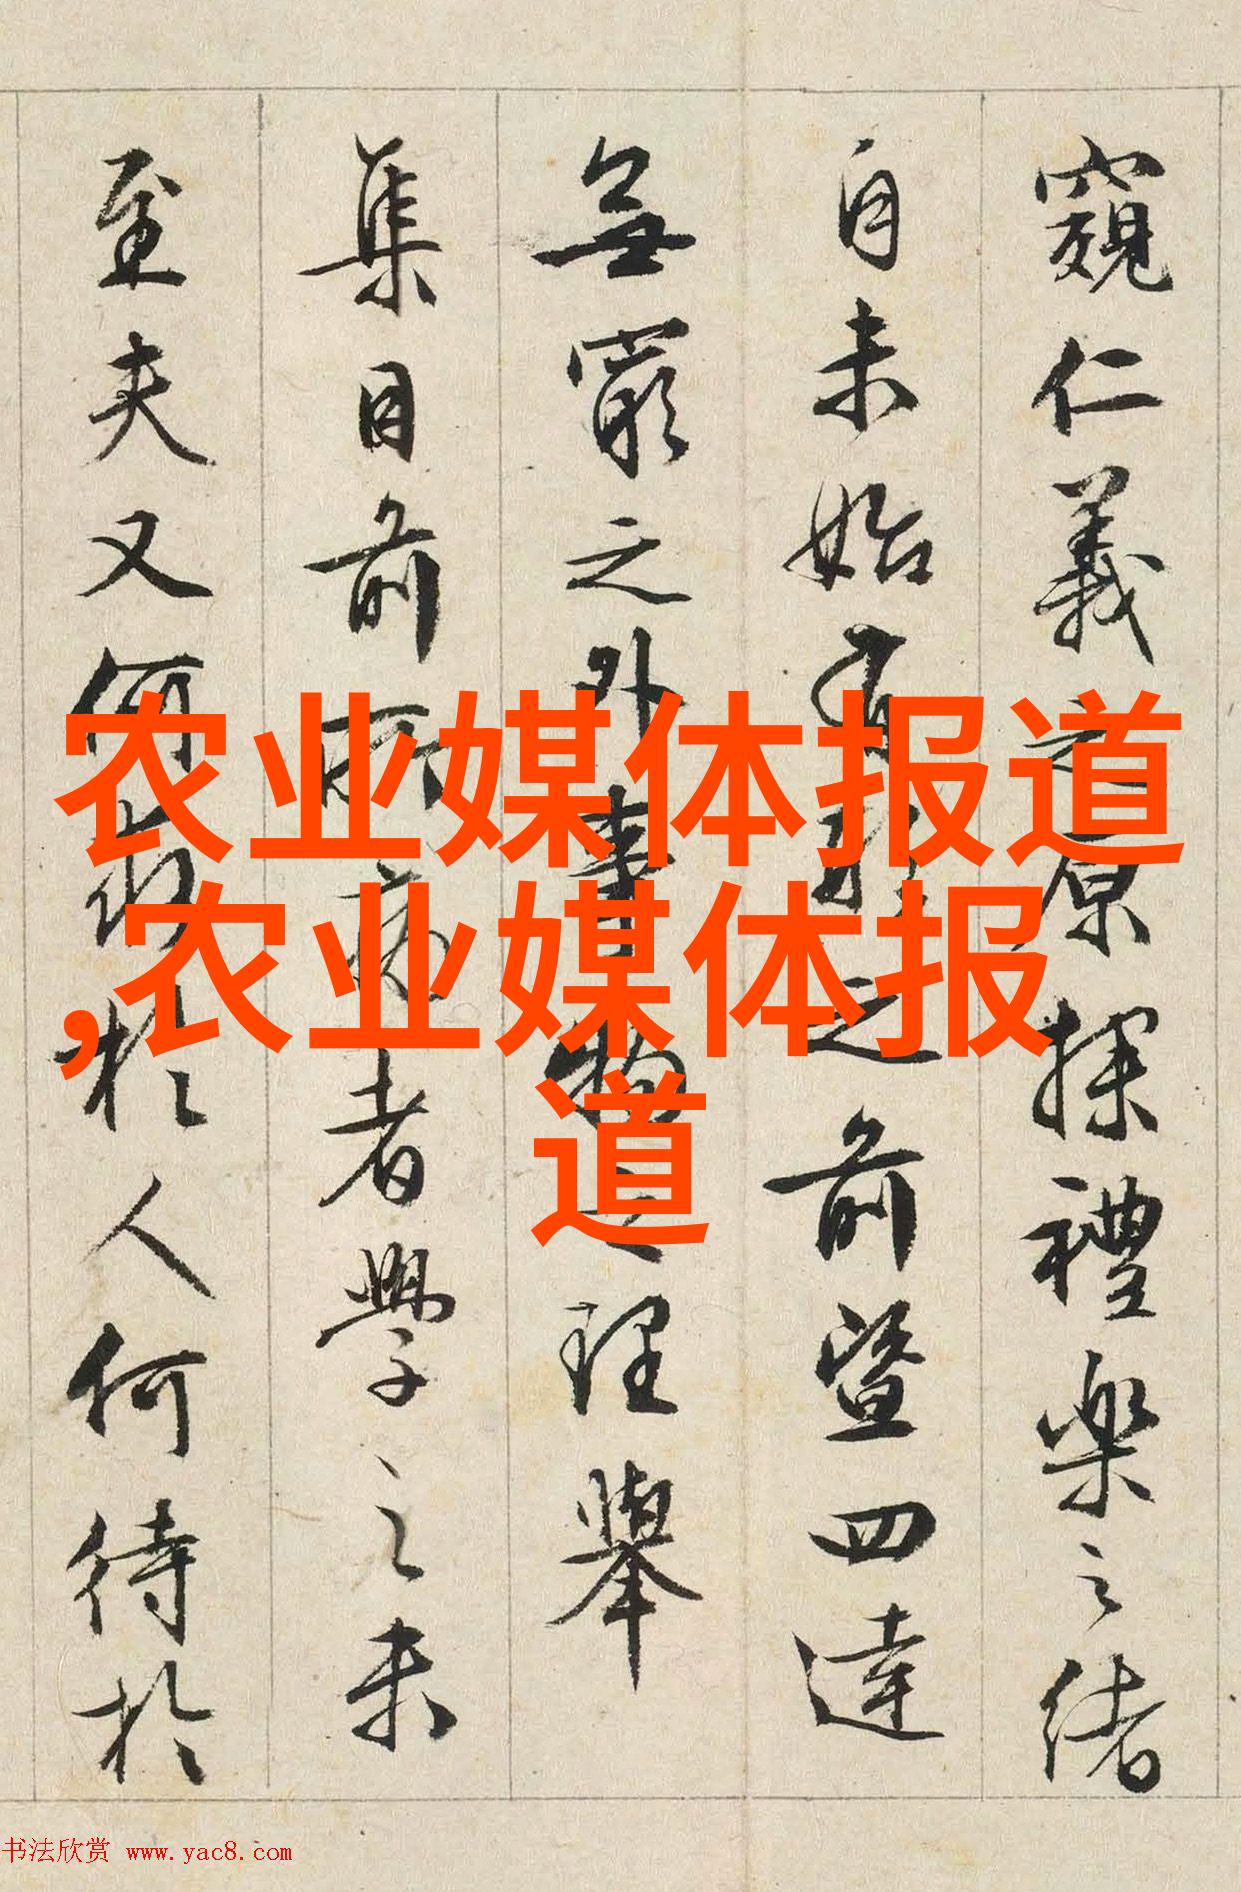 窺仁義之原探禮樂之緒
自未始有形之前暨四達
無窮之外事物之理舉
集目前所病者學之未
至夫又何求於人何待於
农业媒体报道
,农业媒体报
道
书法欣赏 www.yac8.com